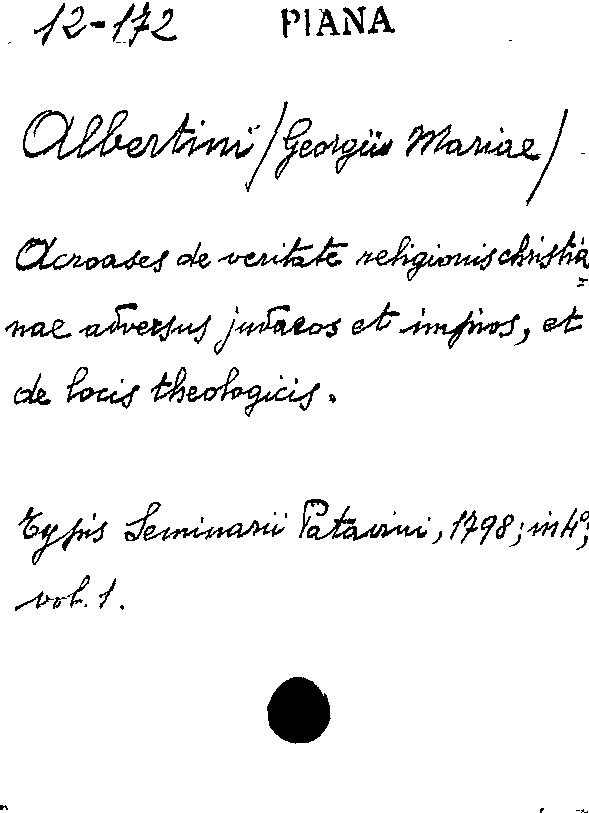 12-172 PIANA
Albertini /Georgii Mariae/
Acroases de veritate religionis christia=
nae adversus judaeos et impios, et
de locis theologicis.
Typis Seminarii Patavini, 1798; in 4º;
vol. 1.